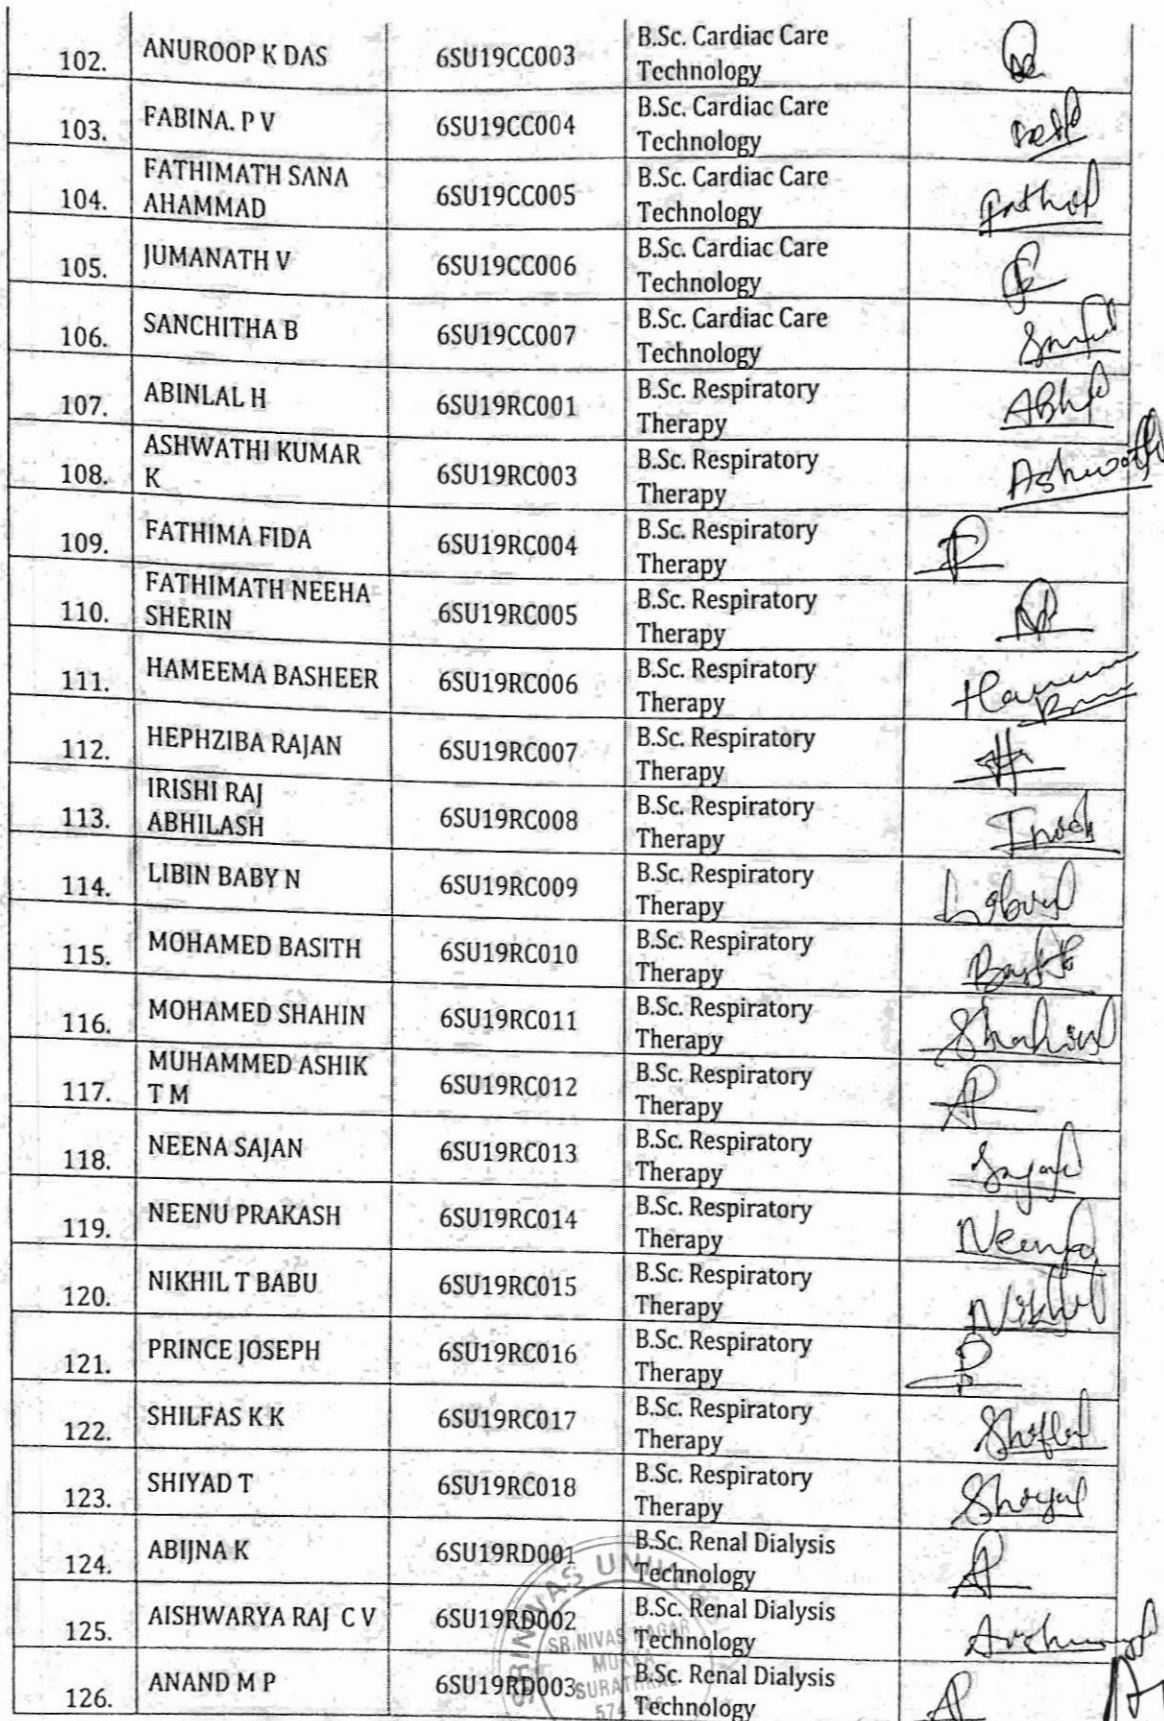 102. ANUROOP K DAS 6SU19CC003 B.Sc. Cardiac Care
Technology
103. FABINA. P V 6SU19CC004 B.Sc. Cardiac Care
Technology
104. FATHIMATH SANA 6SU19CC005 B.Sc. Cardiac Care
AHAMMAD Technology
105. JUMANATH V 6SU19CC006 B.Sc. Cardiac Care
Technology
106. SANCHITHA B 6SU19CC007 B.Sc. Cardiac Care
Technology
107. ABINLAL H 6SU19RC001 B.Sc. Respiratory
Therapy
108. ASHWATHI KUMAR 6SU19RC003 B.Sc. Respiratory
K Therapy Ashwathi
109. FATHIMA FIDA 6SU19RC004 B.Sc. Respiratory
Therapy
110. FATHIMATH NEEHA 6SU19RC005 B.Sc. Respiratory
SHERIN Therapy
111. HAMEEMA BASHEER 6SU19RC006 B.Sc. Respiratory
Therapy
112. HEPHZIBA RAJAN 6SU19RC007 B.Sc. Respiratory
Therapy
113. IRISHI RAJ 6SU19RC008 B.Sc. Respiratory
ABHILASH Therapy
114. LIBIN BABY N 6SU19RC009 B.Sc. Respiratory
Therapy
115. MOHAMED BASITH 6SU19RC010 B.Sc. Respiratory
Therapy
116. MOHAMED SHAHIN 6SU19RC011 B.Sc. Respiratory
Therapy
117. MUHAMMED ASHIK 6SU19RC012 B.Sc. Respiratory
T M Therapy
118. NEENA SAJAN 6SU19RC013 B.Sc. Respiratory
Therapy
119. NEENU PRAKASH 6SU19RC014 B.Sc. Respiratory
Therapy
120. NIKHIL T BABU 6SU19RC015 B.Sc. Respiratory
Therapy Nikhil
121. PRINCE JOSEPH 6SU19RC016 B.Sc. Respiratory
Therapy
122. SHILFAS K K 6SU19RC017 B.Sc. Respiratory
Therapy
123. SHIYAD T 6SU19RC018 B.Sc. Respiratory
Therapy
124. ABIJNA K 6SU19RD001 B.Sc. Renal Dialysis
Technology
125. AISHWARYA RAJ C V 6SU19RD002 B.Sc. Renal Dialysis
Technology
126. ANAND M P 6SU19RD003 B.Sc. Renal Dialysis
Technology
SRINIVAS NAGAR
MUKKA